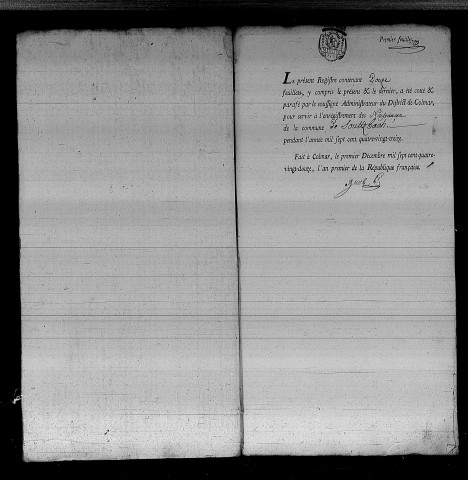 Premier feuillet
LE présent Registre contenant Douze
feuillets, y compris le présent & le dernier, a été coté &
parafé par le soussigné Administrateur du District de Colmar,
pour servir à l'enregistrement des
de la commune de Soultzbach
pendant l'année mil sept cent quatre-vingt-treize.
Fait à Colmar, le premier Décembre mil sept cent quatre-
vingt-douze, l'an premier de la République françaíse.